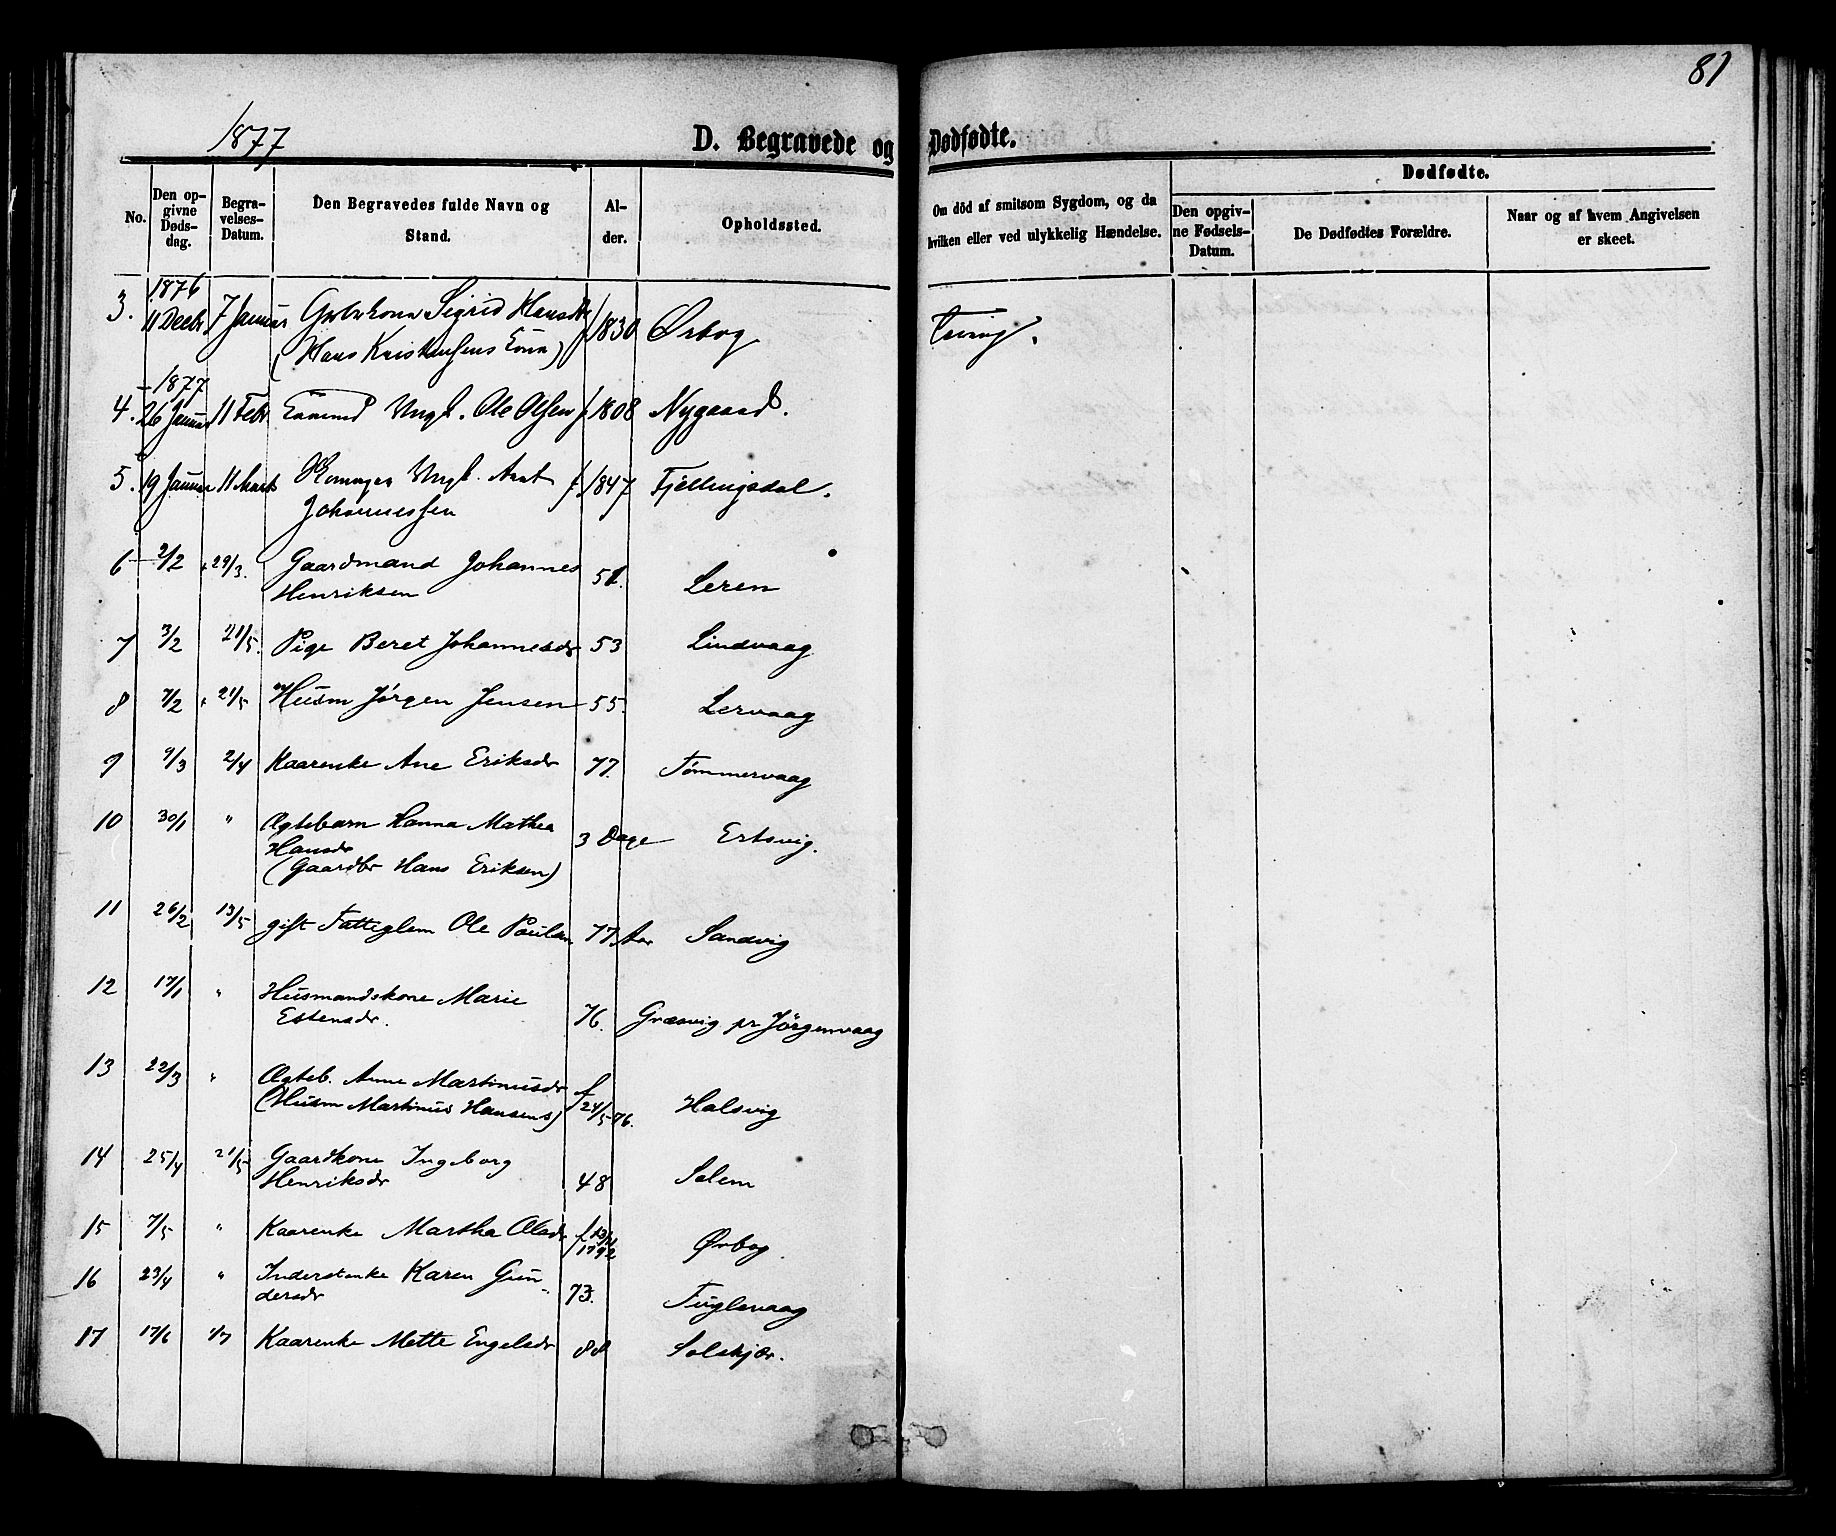 81
1877
D. Begravede og Dødfødte.
No.
Den opgivne Dødsdag.
Begravelses-Datum.
Den Begravedes fulde Navn og Stand.
Alder.
Opholdssted.
Om död af smitsom Sygdom, og da hvilken eller ved ulykkelig Hændelse.
Dødfødte.
Den opgivne Fødsels-Datum.
De Dødfødtes Forældre.
Naar og af hvem Angivelsen er skeet.
1876
3. 11 Decbr 7 Januar Sigrid Hansdr f. 1830 Ørbog
(Hans Kristensens Kone)
1877
4. 26 Januar 11 Febr Ungk. Ole Olsen f. 1808 Nygaard.
5. 19 Januar 11 Marts Ungk. f. 1847 Fjellingsdal.
Johannessen
6 2/2 29/3. Gaardmand Johannes 51. Leren
Henriksen
7 3/2 21/5. Pige Beret Johannesdr 53 Lindvaag
8 7/2 21/5 Husm Jörgen Jensen 55. Lervaag
9 9/3 2/4 Kaarenke Ane Eriksdr 77. Tömmervaag
10 30/1 " Ægtebarn Hanna Mathea 3 Dage Ertsvig.
Hansdr
(Gaardbr Hans Eriksen)
11 26/2 13/5 gift Fatteglem Ole Paulsen 77 Aar Sandvig
12 17/1 " Husmandskone Marie 76. Græsvig pr Jörgenvaag
Estensdr.
13 22/3 " Ægteb. Anne Martinusdr f 24/5 76. Halsvig
(Husm Martinus Hansens)
14 25/4 21/5 Gaardkone Ingeborg 48 Solem
Henriksdr
15 7/5 " Kaarenke Martha Olsdr 1792 Ørbog
16 23/4 " Inderstenke Karen Gun- 73. Fuglevaag
dersdr
17 17/6 1/7 Kaarenke Mette Engelsdr 88 Solskjær.